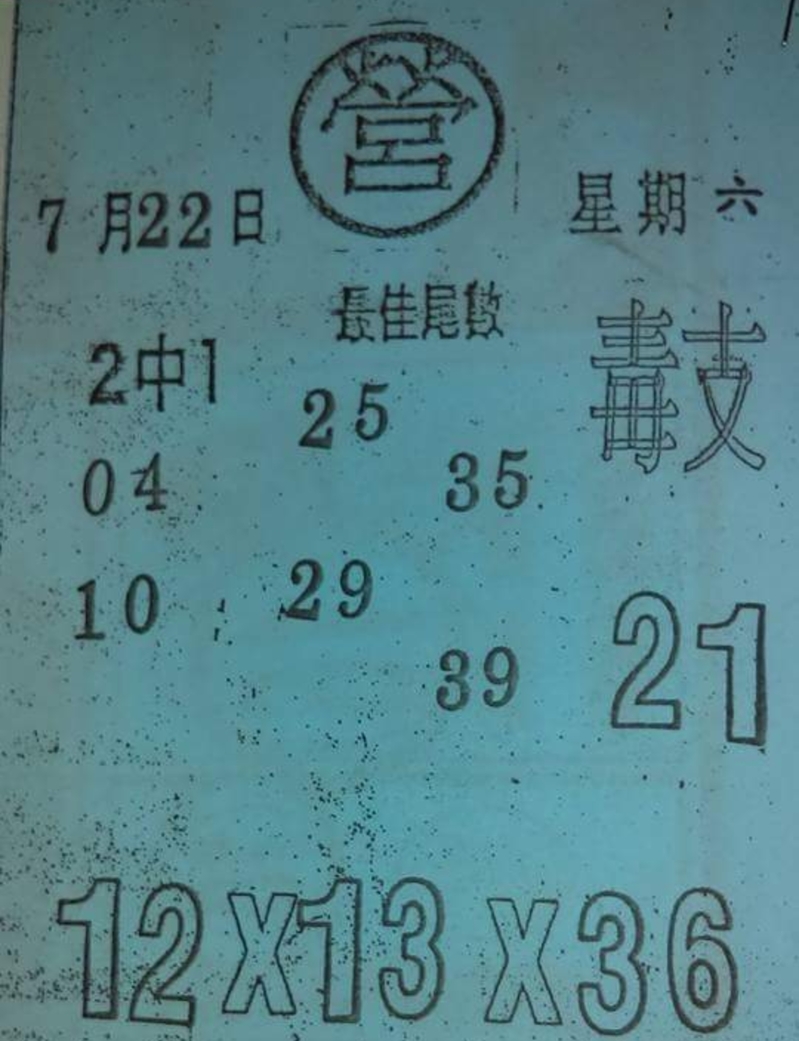 營
7月22日
星期六
最佳尾數
2中1
毒支
25
04
35
10
29
39
21
12X13X36